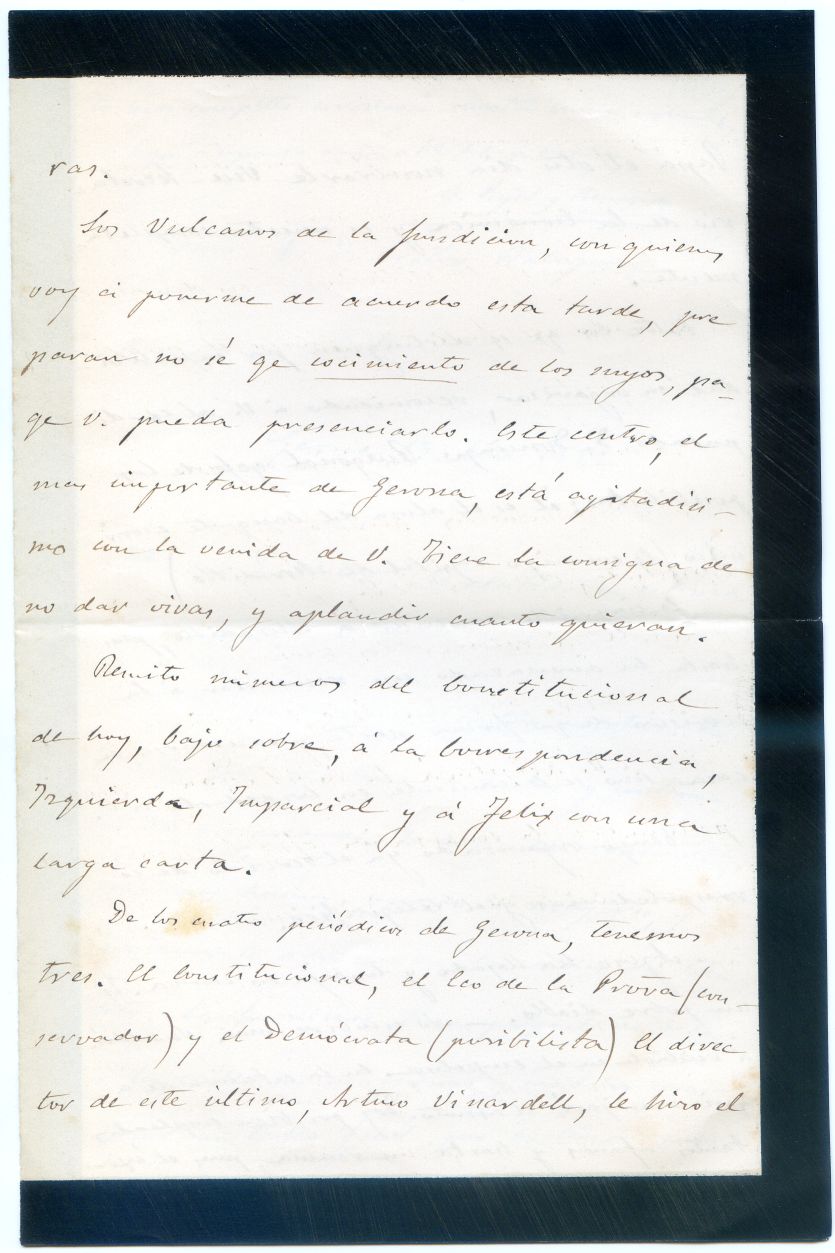 ras.
Los Vulcanos de la fundicion, con quienes
voy á ponerme de acuerdo esta tarde, pre
paran no sé qe cocimiento de los suyos, pa-
qe V. pueda presenciarlo. Este centro, el
mas importante de Gerona, está agitadisi-
mo con la venida de V. Tiene la consigna de
no dar vivas, y aplaudir cuanto quieran.
Remito números del Constitucional
de hoy, bajo sobre, á la Correspondencia,
Izquierda, Imparcial y á Felix con una
larga carta.
De los cuatro periódicos de Gerona, tenemos
tres. El Constitucional, el Eco de la Prova (con-
servador) y el Demócrata (posibilista) El direc
tor de este último, Arturo Vinardell, le hizo el